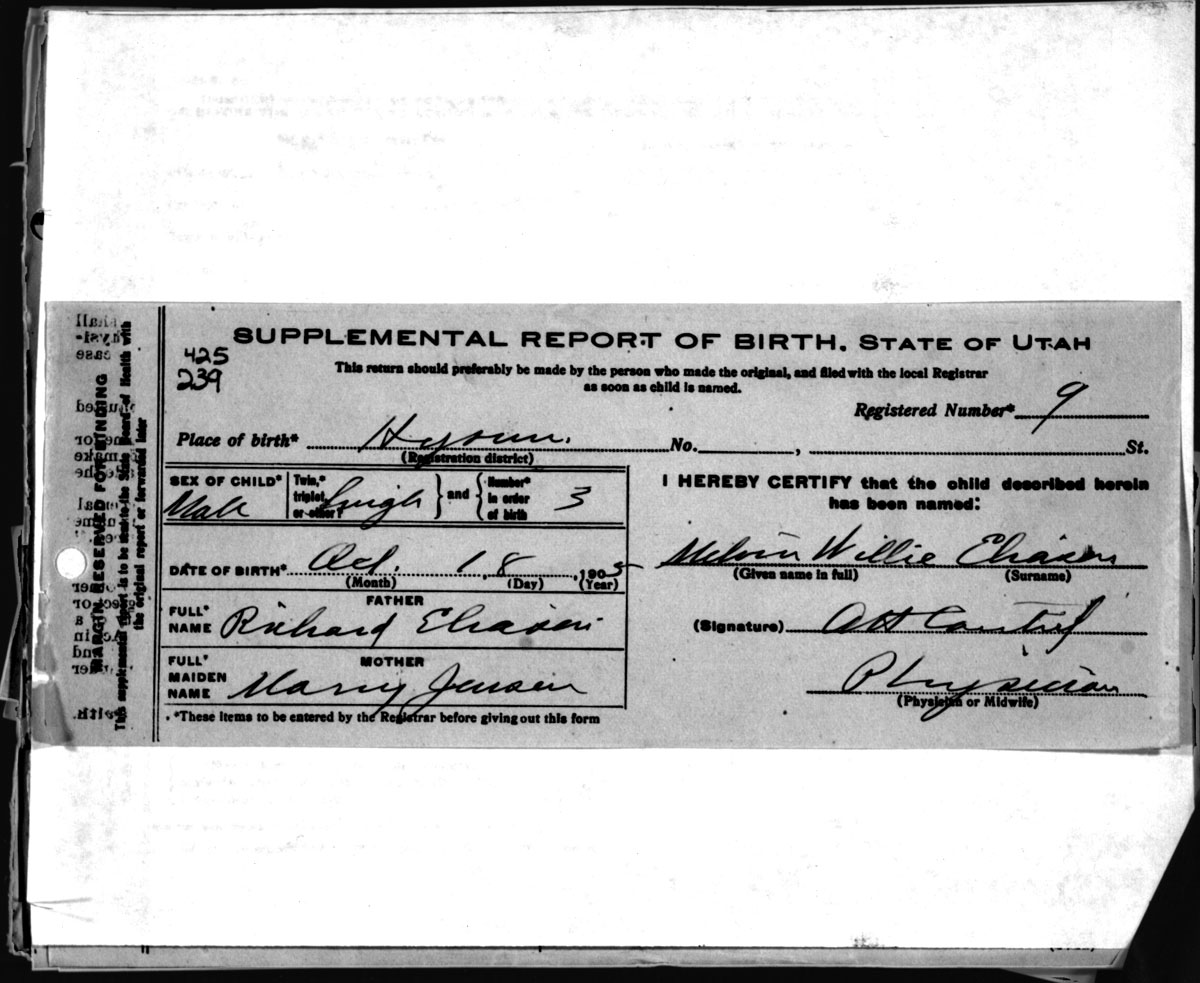 SUPPLEMENTAL REPORT OF BIRTH. STATE OF UTAH
425
239
This return should preferably be made by the person who made the original, and filed with the local Registrar
as soon as child is named.
Registered Number* 9
Place of birth* Hyrum. No. , St.
(Registration district)
SEX OF CHILD* Male
Twin,* triplet, or other? Single
and
Number* in order of birth 3
DATE OF BIRTH* Oct. 18, 1905
(Month) (Day) (Year)
FATHER
FULL* NAME Richard Eliason
MOTHER
FULL* MAIDEN NAME Marry Jensen
*These items to be entered by the Registrar before giving out this form
I HEREBY CERTIFY that the child described herein
has been named:
Melvin Willie Eliasen
(Given name in full) (Surname)
(Signature)
Physician
(Physician or Midwife)
MARGIN RESERVED FOR BINDING
This supplemental report is to be sent to the State Board of Health with
the original report or forwarded later